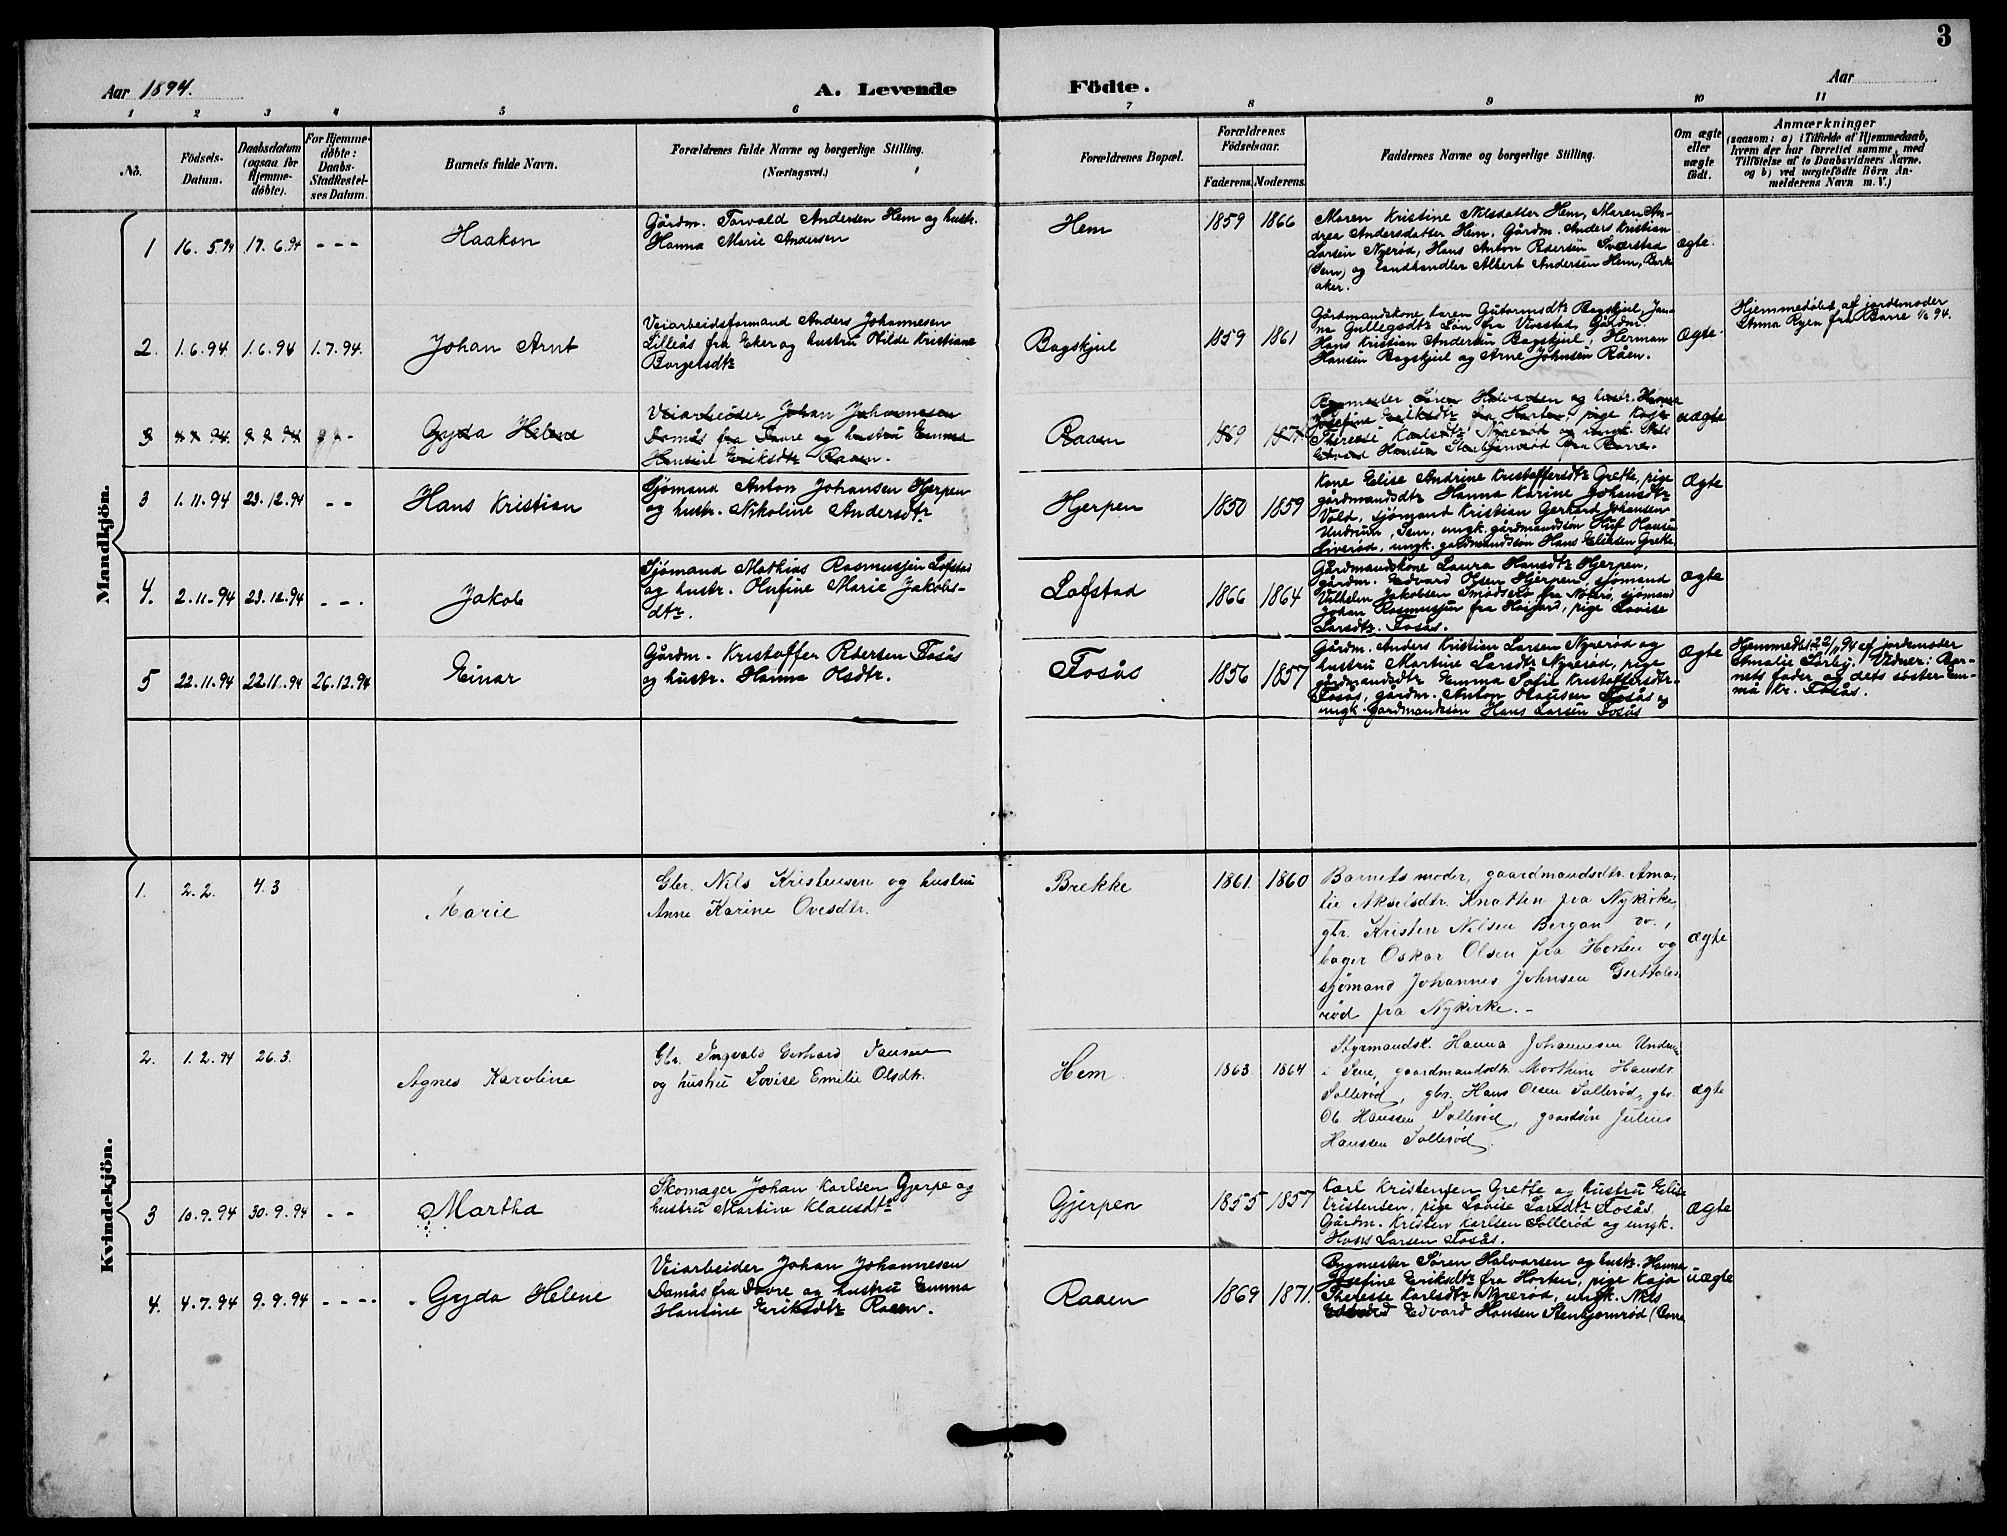 3
Aar 1894.
A. Levende Födte.
Aar
1 2 3 4 5 6 7 8 9 10 11
No.
Födsels-
Datum.
Daabsdatum
(ogsaa for
Hjemme-
döbte).
For Hjemme-
döbte:
Daabs-
Stadfæstel-
ses Datum.
Barnets fulde Navn.
Forældrenes fulde Navne og borgerlige Stilling.
(Næringsvei.)
Forældrenes Bopæl.
Forældrenes
Födselsaar.
Faderens. Moderens.
Faddernes Navne og borgerlige Stilling.
Om ægte
eller
uægte
födt.
Anmærkninger
(saasom: a) i Tilfælde af Hjemmedaab,
hvem der har forrettet samme, med
Tilföielse af to Daabsvidners Navne.
og b) ved uægtefödte Börn An-
melderens Navn m. V.)
Mandkjön.
1 16. 5.94 17. 6.94 - - -
Haakon
Gårdm. Torvald Andersen Hem og hustr.
Hanna Marie Andersen
Hem
1859 1866
Maren Kristine Nilsdatter Hem, Maren An-
drea Andersdatter Hem, Gårdm. Anders Kristian
Larsen Nyerød, Hans Anton Pedersen
(Sem) og landhandler Albert Andersen Hem, Bark-
aker.
Ægte.
2. 1.6.94 1.6.94 1.7.94.
Johan Arnt
Veiarbeidsformand Anders Johannesen
Lilleås fra Eker og hustru Hilde Kristiane
Borgersdtr
Bogskjul
1859 1861
Gårdmandskone Karen Gutormsdtr Bogskjul, Jan-
na Gullegsdtr Løn fra Vivestad, Gårdm.
Hans Kristian Andersen Bogskjul, Herman
Hansen Bogskjul og Arne Johnsen Råen.
Ægte.
Hjemmedøbt af jordemoder
Anna Ryen fra Borre 1/6 94.
3
Gyda Helene
Veiarbeider Johan Johannesen
Damås fra Dovre og hustru Emma
Hansine Eriksdtr Raaen.
Raaen
1869 1871
Bygmester Søren Halvorsen og hustr. Hanna
Josefine Eriksdtr fra Horten, pige Kaja
Therese Karlsdtr Nyerød og ungk. Nils
Edvard Hansen Stenbjørnrød fra Borre.
uægte
3 1.11.94 23.12.94 - -
Hans Kristian
Sjømand Anton Johansen Hjerpen
og hustr. Nikoline Andersdtr.
Hjerpen
1850 1859
Kone Elise Andrine Kristoffersdtr Grette, pige
gårdmandsdtr Hanna Karine Johansdtr
Vold, sjømand Kristian Gerhard Johansen
Undrum, Sem, ungk. gårdmandssøn Hansen
Siverød, ungk. gårdmandssøn Hans Eliasen Grette.
Ægte
4. 2.11.94 23.12.94 - - -
Jakob
Sjømand Mathias Rasmussen Lofstad
og hustr. Olufine Marie Jakobs-
dtr.
Lofstad
1866 1864
Gårdmandskone Laura Hansdtr Hjerpen,
gårdm. Edvard Olsen Hjerpen, sjømand
Vilhelm Jakobsen fra Nøterø, sjømand
Johan Rasmussen fra Høijord, pige Lovise
Larsdtr. Fosås.
Ægte
5 22.11.94 22.11.94 26.12.94
Einar
Gårdm. Kristoffer Pedersen Fosås
og hustr. Hanna Olsdtr.
Fosås
1856 1857
Gårdm. Anders Kristian Larsen Nyerød og
hustru Martine Larsdtr Nyerød, pige
gårdmandsdtr Emma Sofie Kristoffersdtr
Fosås, gårdm. Anton Olausen Fosås og
ungk. gårdmandssøn Hans Larsen Fosås
Ægte
Hjemmedøbt 22/11 94 af jordemoder
Amalie Sørby. Vidner: Bar-
nets fader og dets søster Em-
ma Kr. Fosås.
Kvindekjön.
1. 2.2. 4.3
Marie
Gbr. Nils Kristensen og hustru
Anne Karine Ovesdtr.
Brekke
1861. 1860
Barnets moder, gaardmandsdtr. Ama-
lie Akselsdtr. Knatten fra Nykirke
gbr. Kristen Nilsen Bergan
bager Oskar Olsen fra Horten og
sjømand Johannes Johnsen
rød fra Nykirke. -
ægte
2. 1.2.94 26.3.
Agnes Karoline
Gbr. Ingvald Gerhard Jansen
og hustru Lovise Emilie Olsdtr.
Hem
1863 1864
Styrmandsk. Hanna Johannesen Undrum
i Sem, gaardmandsdtr. Marthine Hansdtr
Sollerød, gbr. Hans Olsen Sollerød, gbr.
Ole Hanssen Sollerød, gaardsøn Julius
Hanssen Sollerød.
ægte
3 10.9.94 30.9.94 - -
Martha
Skomager Johan Karlsen Gjerpe og
hustru Martine Klausdtr
Gjerpen
1855 1857
Karl Kristensen Grette og hustru Elise
Kristensen, pige Lovise Larsdtr Fosås
Gårdm. Kristen Karlsen Sollerød og ungk.
Hans Larsen Fosås.
Ægte
4. 4.7.94 9.9.94 - - - -
Gyda Helene
Veiarbeider Johan Johannesen
Damås fra Dovre og hustru Emma
Hansine Eriksdtr Raaen.
Raaen
1869 1871.
Bygmester Søren Halvorsen og hustr. Hanna
Josefine Eriksdtr fra Horten, pige Kaja
Therese Karlsdtr Nyerød, ungk. Nils
Edvard Edvard Hansen Stenbjørnrød (Borre
uægte